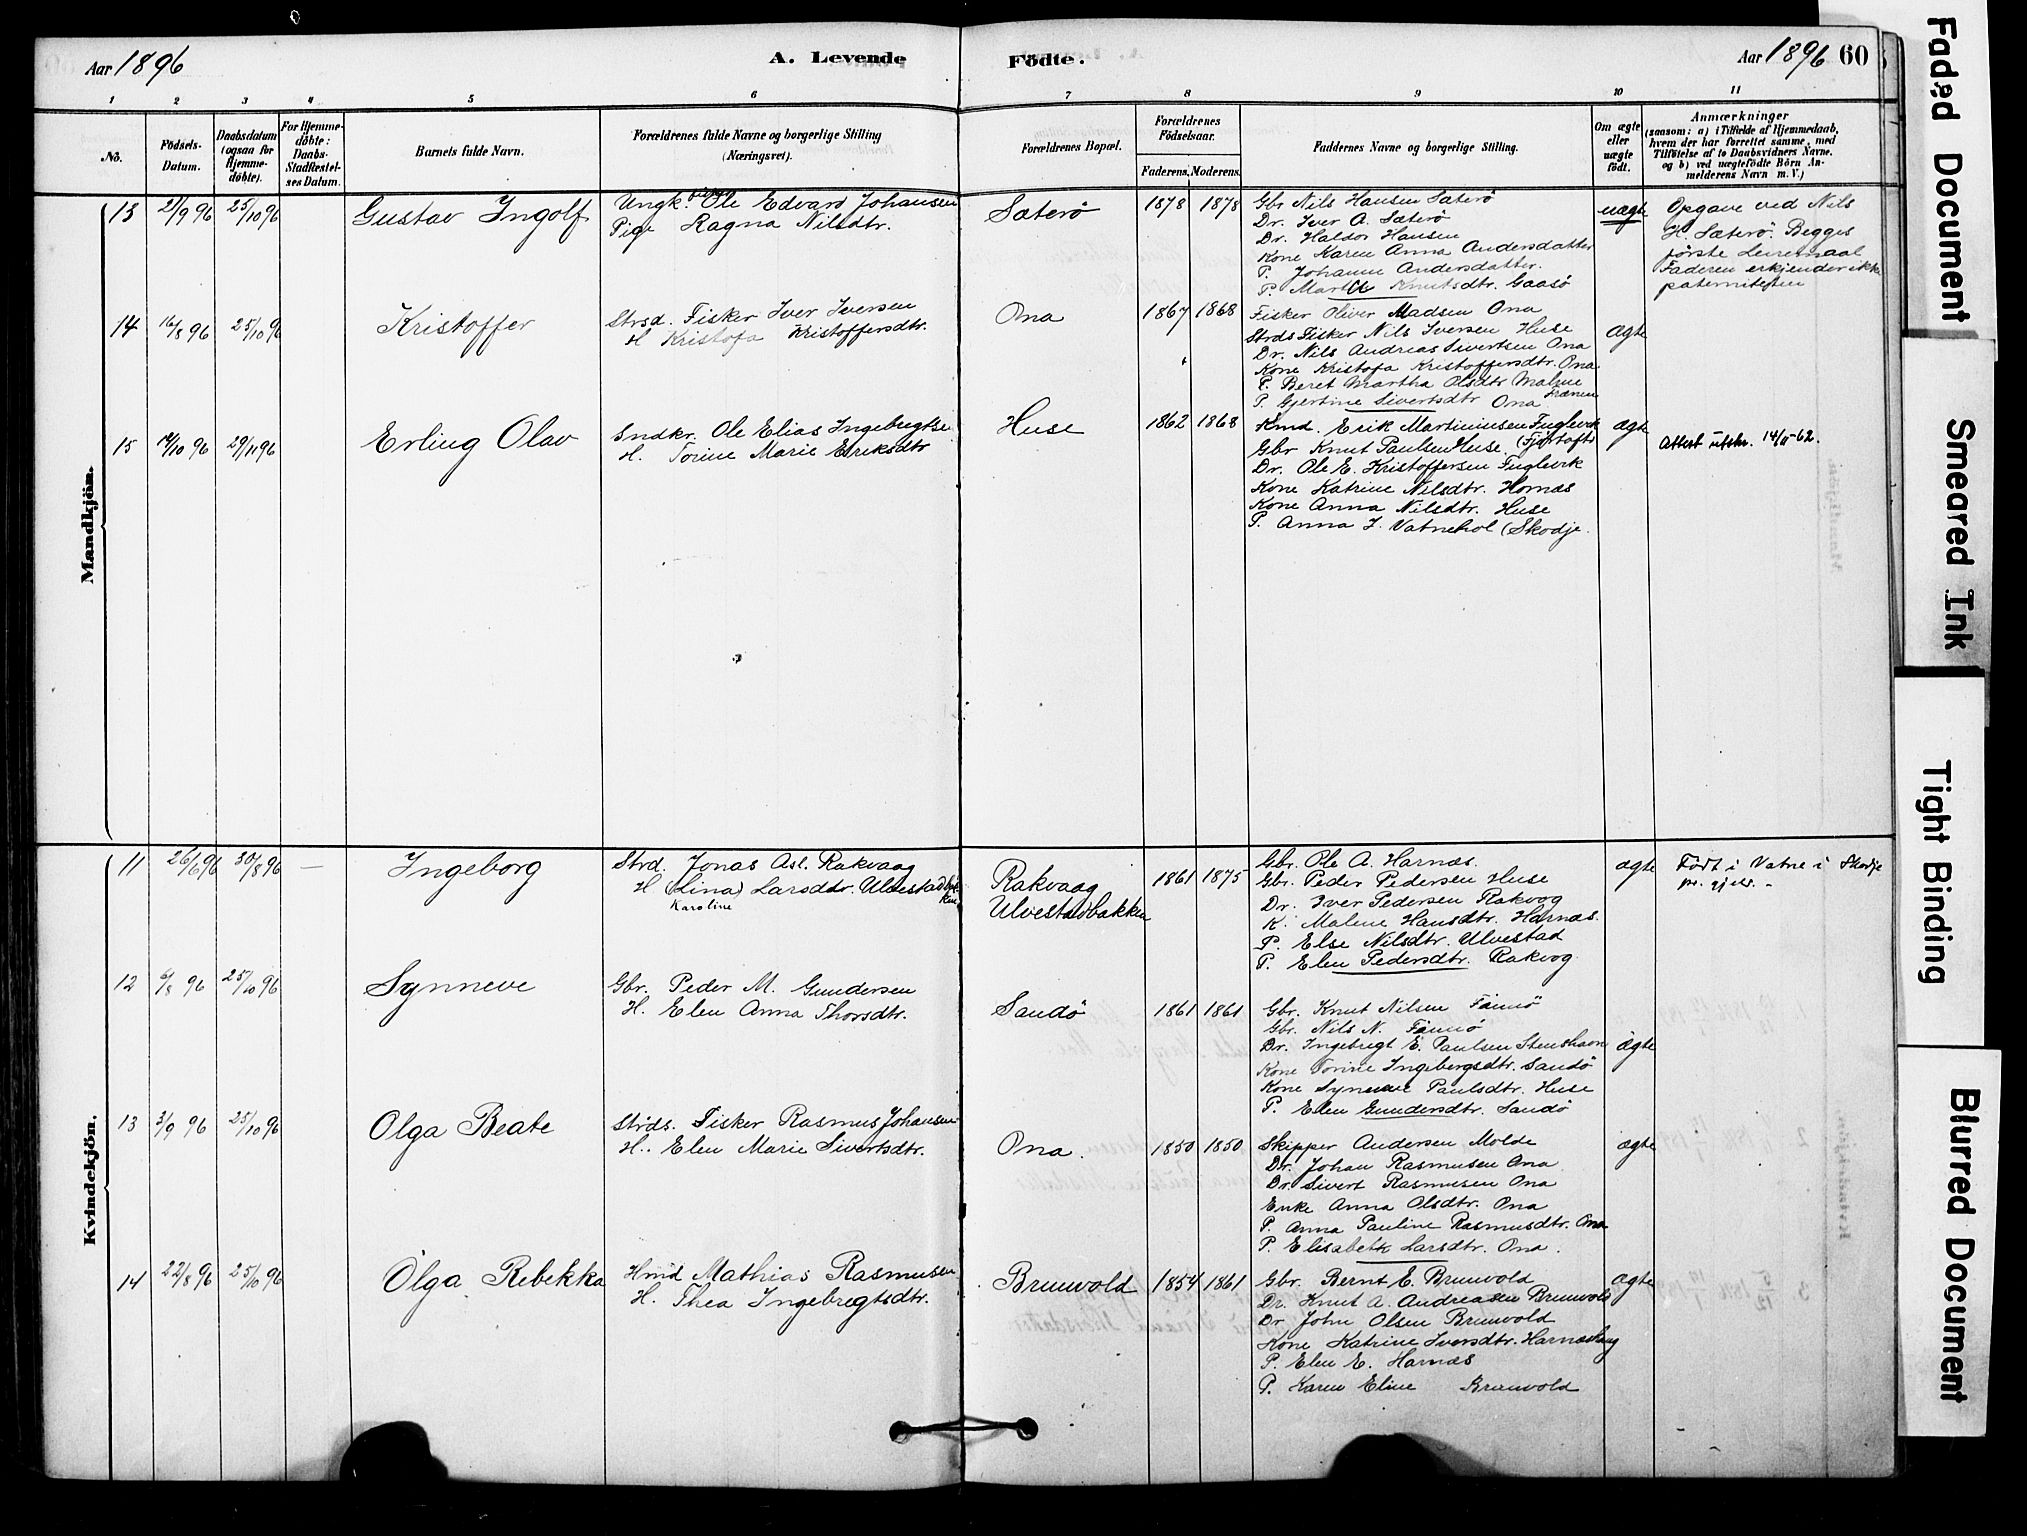 Aar 1896
A. Levende
Födte.
Aar 1896 60
1 2 3 4 5 6 7 8 9 10 11
No.
Födsels-
Datum.
Daabsdatum
(ogsaa for
Hjemme-
döbte).
For Hjemme-
döbte:
Daabs-
Stadfæstel-
ses Datum.
Barnets fulde Navn.
Forældrenes fulde Navne og borgerlige Stilling
(Næringsvei).
Forældrenes Bopæl.
Forældrenes
Födselsaar.
Faderens. Moderens.
Faddernes Navne og borgerlige Stilling.
Om ægte
eller
uægte
födt.
Anmærkninger
(saasom: a) i Tilfælde af Hjemmedaab,
hvem der har forrettet samme, med
Tilföielse af to Daabsvidners Navne,
og b) ved uægtefödte Börn An-
melderens Navn m. V.)
Mandkjön.
13 21/9 96 25/10 96 Gustav Ingolf
Ungk. Ole Edvard Johansen
Pige Ragna Nilsdtr.
Sæterö 1878 1878
Gbr Nils Hansen Sæterö
Dr. Iver A. Sæterö
Dr. Haldor Hansen
Kone Karen Anna Andersdatter
P. Johanne Andersdatter.
P. Martha Knutsdtr. Gaasö
uægte
Opgave ved Nils
H. Sæterö. Begges
første Leiermaal
Faderen erkjender ikke
paterniteten
14 16/8 96 25/10 96 Kristoffer
Strsd. Fisker Iver Iversen
H Kristofa Kristoffersdtr.
Ona 1867 1868
Fisker Oliver Madsen Ona
Strds Fisker Nils Iversen Huse
Dr. Nils Andreas Sivertsen Ona
Kone Kristofa Kristoffersdtr. Ona
P. Beret Martha Olsdtr Malme
Frænen
P. Gjertine Sivertsdtr Ona
ægte
15 14/10 96 29/11 96 Erling Olav
Sndkr. Ole Elias Ingebrigtse
H. Torine Marie Eriksdtr
Huse 1862 1868
Kmd. Erik Martinusen Fuglevik
Gbr Knut Paulsen Huse (Fjørtoft)
Dr. Ole E. Kristoffersen Fuglevik
Kone Katrine Nilsdtr. Hornæs
Kone Anna Nilsdtr. Huse
P. Anna I. Vatnehol (Skodje
ægte
Attest utstr. 14/11-62.
Kvindekjön.
11 26/6 96 30/8 96 — Ingeborg
Strd. Jonas Asl. Rakvaag
H (Lina) Larsdtr. Ulvestadbak
ken
Karoline
Rakvaag
Ulvestadbakken
1861 1875
Gbr. Ole A. Harnæs.
Gbr. Peder Pedersen Huse
Dr. Iver Pedersen Rakvog
K. Malene Hansdtr. Harnæs.
P. Else Nilsdtr. Ulvestad
P. Elen Pedersdtr. Rakvog
ægte
Født i Vatne i Skodje
pr. gjeld. -
12 6/8 96 25/10 96 Synneve
Gbr. Peder M. Gundersen
H. Elen Anna Thorsdtr.
Sandö 1861 1861
Gbr. Knut Nilsen Finnö
Gbr. Nils N. Finnö
Dr. Ingebrigt E. Paulsen Stenshavn
Kone Torine Ingebergsdtr. Sandö
Kone Synneve Paulsdtr. Huse
P. Elen Gundersdtr. Sandö
ægte
13 3/9 96 25/10 96 Olga Beate
Strds. Fisker Rasmus Johansen
H. Elen Marie Sivertsdtr.
Ona. 1850 1850
Skipper Andersen Molde
Dr. Johan Rasmusen Ona
Dr. Sivert Rasmusen Ona
Enke Anna Olsdtr. Ona
P. Anna Pauline Rasmusdtr. Ona
P. Elisabeth Larsdtr. Ona.
ægte
14 22/8 96 25/10 96 Olga Rebekka
Hmd Mathias Rasmusen
H. Thea Ingebregtsdtr.
Brunvold 1854 1861
Gbr. Bernt E. Brunvold
Dr. Knut A. Andreasen Brunvold
Dr John Olsen Brunvold
Kone Katrine Iversdtr. Harnæshaug
P. Elen E. Harnæs
P. Karen Eline Brunvold
ægte
Faded Document
Smeared Ink
Tight Binding
Blurred Document